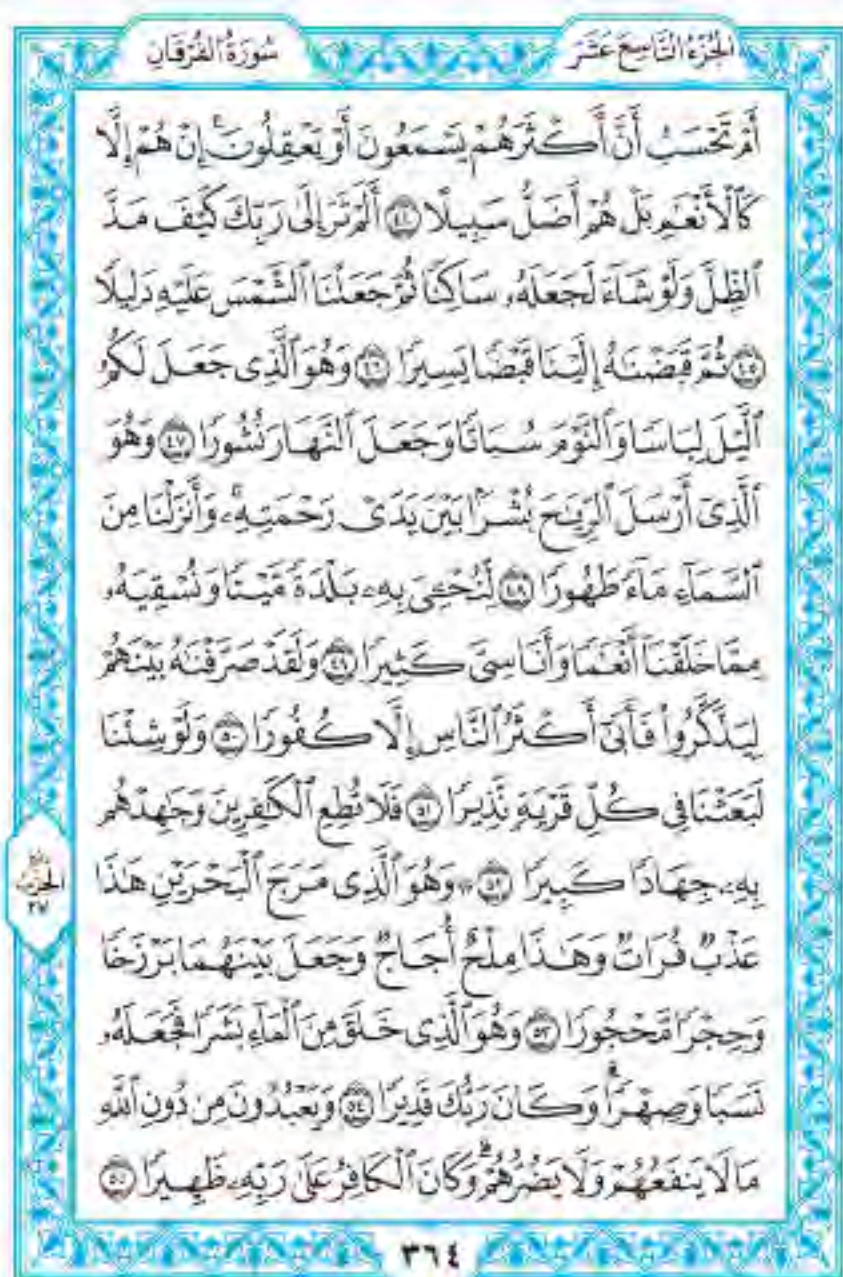 الجُزْءُ التَّاسِعَ عَشَرَ
سُورَةُ الفُرْقَانِ
أَمۡ تَحۡسَبُ أَنَّ أَكۡثَرَهُمۡ يَسۡمَعُونَ أَوۡ يَعۡقِلُونَۚ إِنۡ هُمۡ إِلَّا
كَٱلۡأَنۡعَٰمِ بَلۡ هُمۡ أَضَلُّ سَبِيلًا ٤٤ أَلَمۡ تَرَ إِلَىٰ رَبِّكَ كَيۡفَ مَدَّ
ٱلظِّلَّ وَلَوۡ شَآءَ لَجَعَلَهُۥ سَاكِنٗا ثُمَّ جَعَلۡنَا ٱلشَّمۡسَ عَلَيۡهِ دَلِيلٗا
٤٥ ثُمَّ قَبَضۡنَٰهُ إِلَيۡنَا قَبۡضٗا يَسِيرٗا ٤٦ وَهُوَ ٱلَّذِي جَعَلَ لَكُمُ
ٱلَّيۡلَ لِبَاسٗا وَٱلنَّوۡمَ سُبَاتٗا وَجَعَلَ ٱلنَّهَارَ نُشُورٗا ٤٧ وَهُوَ
ٱلَّذِيٓ أَرۡسَلَ ٱلرِّيَٰحَ بُشۡرَۢا بَيۡنَ يَدَيۡ رَحۡمَتِهِۦۚ وَأَنزَلۡنَا مِنَ
ٱلسَّمَآءِ مَآءٗ طَهُورٗا ٤٨ لِّنُحۡـِۧيَ بِهِۦ بَلۡدَةٗ مَّيۡتٗا وَنُسۡقِيَهُۥ
مِمَّا خَلَقۡنَآ أَنۡعَٰمٗا وَأَنَاسِيَّ كَثِيرٗا ٤٩ وَلَقَدۡ صَرَّفۡنَٰهُ بَيۡنَهُمۡ
لِيَذَّكَّرُواْ فَأَبَىٰٓ أَكۡثَرُ ٱلنَّاسِ إِلَّا كُفُورٗا ٥٠ وَلَوۡ شِئۡنَا
لَبَعَثۡنَا فِي كُلِّ قَرۡيَةٖ نَّذِيرٗا ٥١ فَلَا تُطِعِ ٱلۡكَٰفِرِينَ وَجَٰهِدۡهُم
بِهِۦ جِهَادٗا كَبِيرٗا ٥٢ ۞ وَهُوَ ٱلَّذِي مَرَجَ ٱلۡبَحۡرَيۡنِ هَٰذَا
عَذۡبٞ فُرَاتٞ وَهَٰذَا مِلۡحٌ أُجَاجٞ وَجَعَلَ بَيۡنَهُمَا بَرۡزَخٗا
وَحِجۡرٗا مَّحۡجُورٗا ٥٣ وَهُوَ ٱلَّذِي خَلَقَ مِنَ ٱلۡمَآءِ بَشَرٗا فَجَعَلَهُۥ
نَسَبٗا وَصِهۡرٗاۗ وَكَانَ رَبُّكَ قَدِيرٗا ٥٤ وَيَعۡبُدُونَ مِن دُونِ ٱللَّهِ
مَا لَا يَنفَعُهُمۡ وَلَا يَضُرُّهُمۡۗ وَكَانَ ٱلۡكَافِرُ عَلَىٰ رَبِّهِۦ ظَهِيرٗا ٥٥
الحِزْب
٣٧
٣٦٤